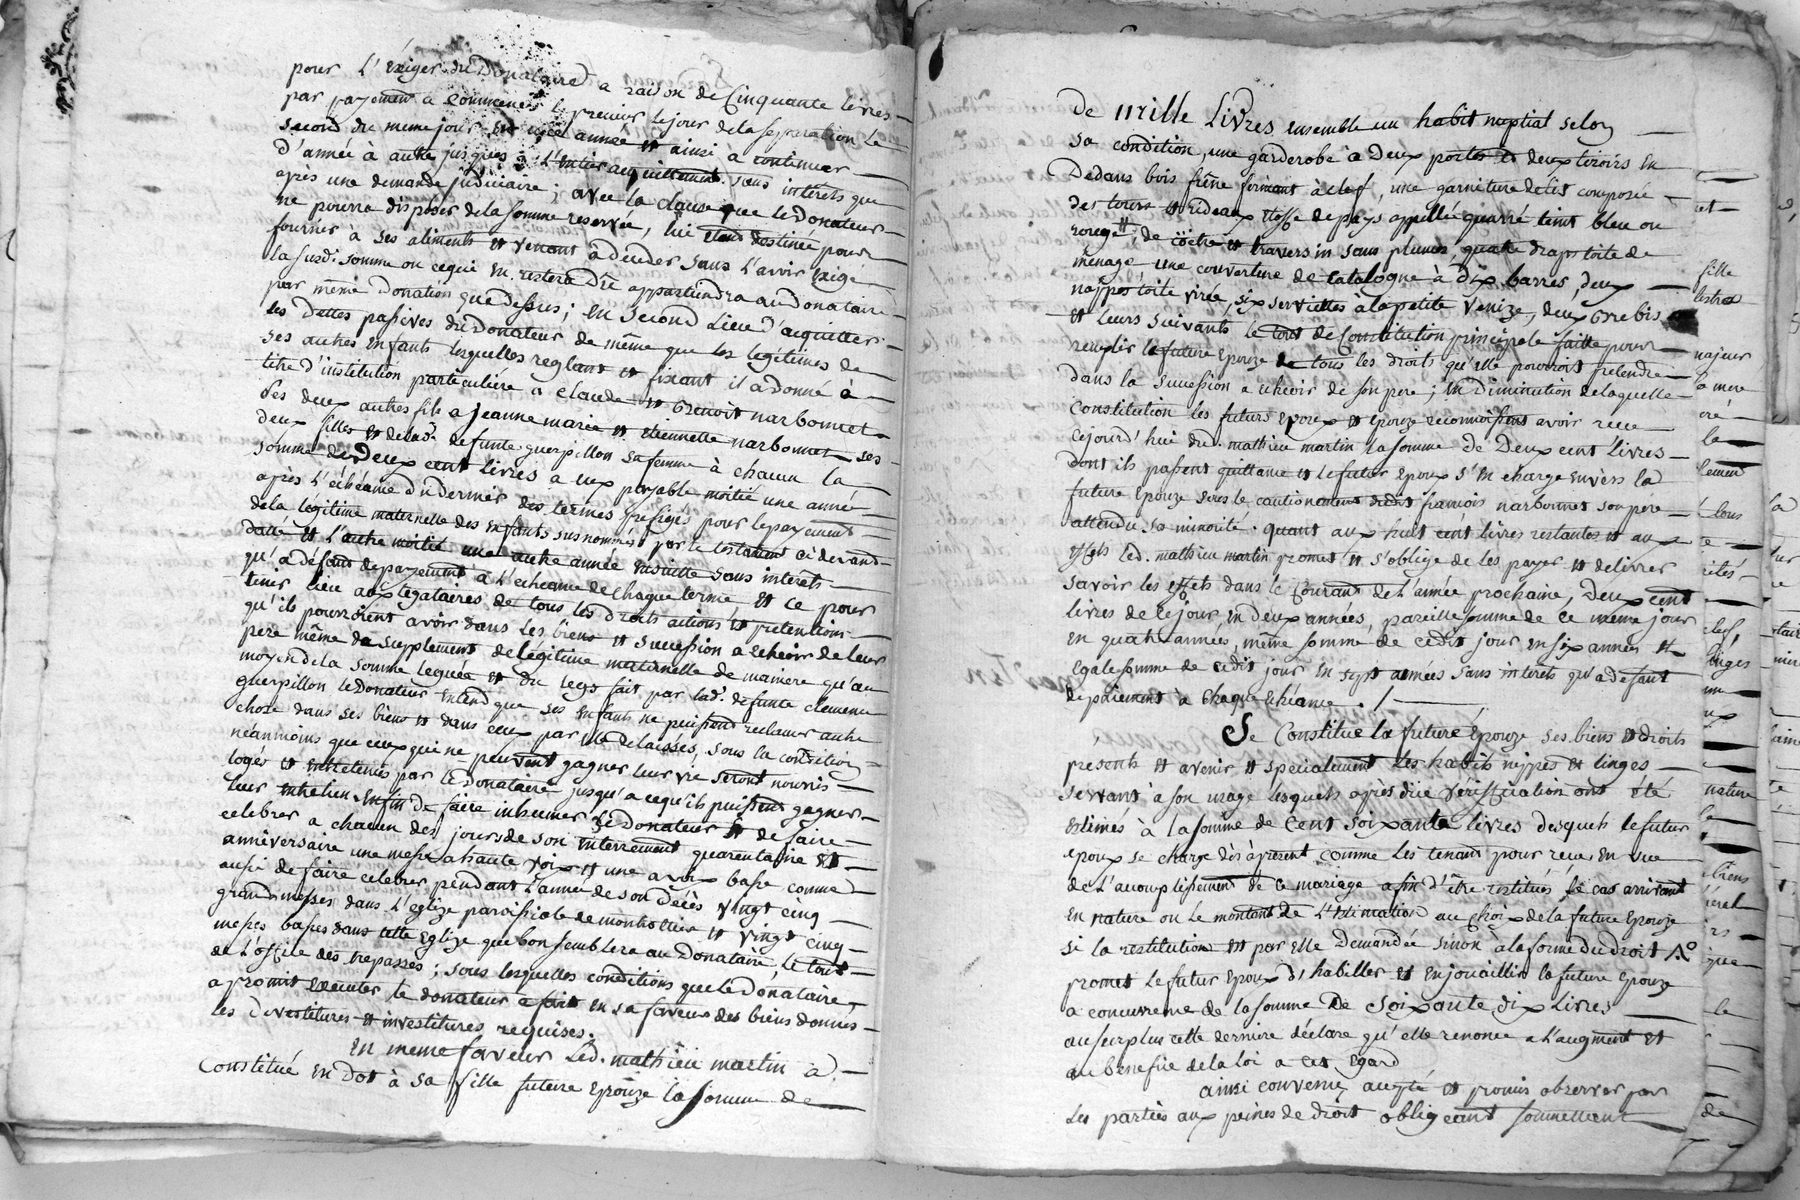 pour l'exiger du Donataire a raison de Cinquante livres
par payement a commencer le premier le jour de la separation le
second du meme jour en une année et ainsi à continuer
d'année à autre jusques a l'entier acquittement sans intérêts que
après une demande judiciaire ; avec la clause que le donateur
ne pourra disposer de la somme reservée, lui etant destinée pour
fournir à ses aliments et venant à deceder sans l'avoir exigé
la susd. somme ou ce qui en restera dû appartiendra au donataire
par même donation que dessus ; en second lieu d'acquitter
les dettes passives du donateur de même que les legitimes de
ses autres enfants lesquelles reglant et fixant il a donné à
titre d'institution particuliére a Claude et Benoit narbonnet
ses deux autres fils a jeanne marie et etiennette narbonnet ses
deux filles et de lad. defunte guerpillon sa femme à chacun la
somme de Deux cent livres a eux payable moitié une année
après l'échéance du dernier des termes prefigés pour le payement
de la légitime maternelle des enfants susnommés par le testament ci devant
datté et l'autre moitié une autre année ensuitte sans interêts
qu'a défaut de payement à l'echeance de chaque terme et ce pour
tenir lieu aux legataires de tous les droits actions et pretentions
qu'ils pourroient avoir dans les biens et succession a echeoir de leur
pere même de supplement de légitime maternelle de maniere qu'au
moyen de la somme leguée et du legs fait par lad. defunte clemence
guerpillon le Donateur entend que ses enfants ne puissent reclamer autre
chose dans ses biens et dans ceux par elle delaissés, sous la condition
néanmoins que ceux qui ne peuvent gagner leur vie seront nourris
logés et entretenus par le Donataire jusqu'a ce qu'ils puissent gagner
leur entretien. Enfin de faire inhumer le Donateur et de faire
celebrer a chacun des jours de son enterrement quarentaine et
anniversaire une messe a haute voix et une a voix basse comme
aussi de faire celebrer pendant l'année de son décès vingt cinq
grand messes dans l'eglize paroissiale de et vingt cinq
messes basses dans telle Eglize que bon semblera au Donataire, le tout
de l'office des trepassés ; sous lesquelles conditions que le Donataire
a promit executer le donateur a fait en sa faveur des biens donnés
les devestitures et investitures requises.
En meme faveur Led. mathieu martin a
Constitué en dot à sa fille future Epouze la somme de
De mille Livres ensemble un habit nuptial selon
sa condition, une garderobe à deux portes et deux tiroirs en
Dedans bois frêne fermant à clef, une garniture de lit composée
des tours et rideaux etoffe de pays appellée quarré teint bleu ou
rouge, de coëtre et traversin sans plumes, quatre draps toile de
ménage une couverture de Catalogne à dix barres, deux
nappes toile virée, six serviettes à la petite Venize, deux brebis
et leurs suivants le tout de Constitution principale faitte pour
remplir la future Epouze de tous les droits qu'elle pourroit pretendre
dans la succession a echeoir de son pere ; en Diminution de laquelle
Constitution les futurs epoux et epouze reconnoissent avoir recu
cejourd'hui du d. mathieu martin la somme de Deux cent livres
dont ils passent quittance et le futur epoux s'en charge envers la
future Epouze sous le cautionement dudit françois narbonnet son pere
attendu sa minorité. quant aux huit cent livres restantes et aux
effets led. mathieu martin promet et s'oblige de les payer et delivrer
savoir les effets dans le courant de l'année prochaine, Deux cent
livres de ce jour en deux années, pareille somme de ce meme jour
en quatre années, même somme de cedit jour en six années et
egale somme de cedit jour en sept années sans interets qu'a defaut
de paiement à chaque echéance. /
Se Constitue la future Epouze ses biens et droits
présents et avenir et specialement les habits nippes et linges
servant à son usage lesquels après due vérification ont été
estimés à la somme de Cent soixante livres desquels le futur
epoux se charge dès à present comme les tenant pour recu en vue
de l'accomplissement de ce mariage afin d'être restitués le cas arrivant
en nature ou le montant de l'Estimation au choix de la future Epouze
si la restitution est par elle Demandée sinon a la forme du droit
promet le futur Epoux d'habiller et enjouailler la future Epouze
a concurrence de la somme de soixante dix livres
au surplus cette derniere déclare qu'elle renonce a l'augment et
au benefice de la loi a cet Egard
ainsi convenu, accepté et promis observer par
les parties aux peines de droit obligeant soumettant